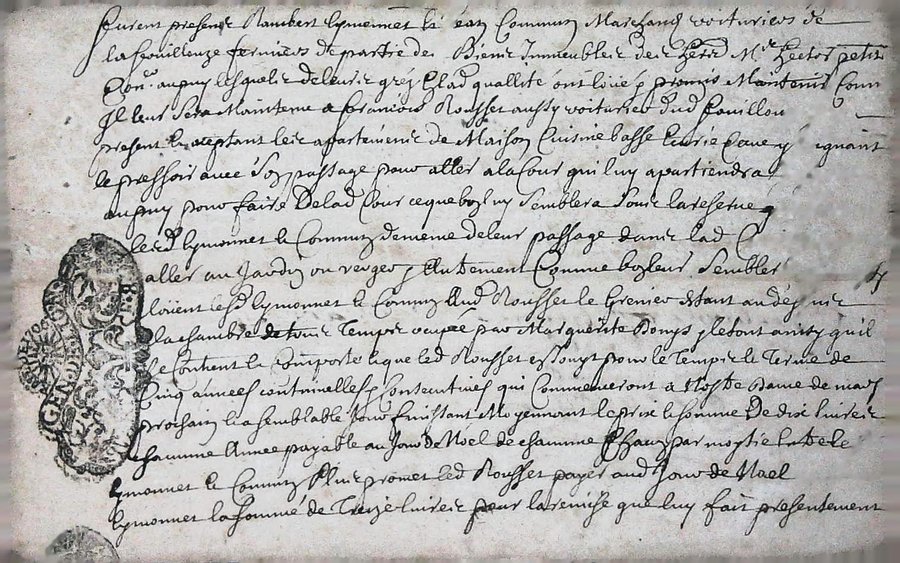 furent presens Rambert Eymonnet & Jean Commun Marchand voituriers de
la fouillouze fermiers de partie des Biens Immeubles des Me hector petit
au puy lesquels de leurs gréz ont loué & promis Maintenir
a francois Rousset aussy voiturier du fouillou
present & acceptant les apartements de Maison Cuisine basse Ecurie Cave &
le pressoir avec son passage pour aller a la Cour qui luy apartiendra
au puy pour faire De lad Cour ce que bon luy semblera sous la reserve
lesd Eymonnet & Commun de meme de leur passage dans lad C
aller au Jardin ou verger & autrement Comme bon leur semblera
lesd Eymonnet & Commun aud Rousset le Grenier Estant au dessus
la chambre de tous Temps occupée par Marguerite & le tout ainsy qu'il
se Contient & Comporte & que led Rousset pour le Temps & Terme de
Cinq années continuelles & Consecutives qui Commenceront a Nostre Dame de mars
prochain & a semblable Jour finissant Moyennant le prix & somme De dix livres
chacune Année payable au Jour de Noel de chacune par moytie
Eymonnet & Commun Plus promet led Rousset payer aud Jour de Noel
Eymonnet la somme de Treize livres pour la remise que luy fait presentement
GEN DE LYON